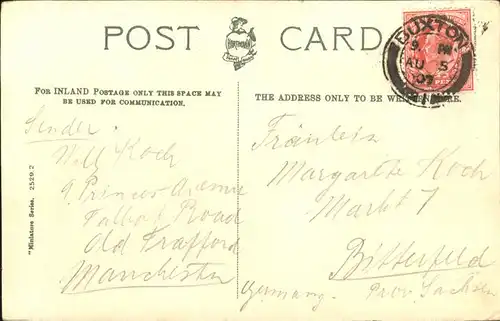 POST CARD
BUXTON
9 PM
AU 5
07
FOR INLAND POSTAGE ONLY THIS SPACE MAY
BE USED FOR COMMUNICATION.
THE ADDRESS ONLY TO BE WRITTEN HERE.
"Miniature Series. 2529.2
Sender:
Koch
9. Princes Avenue
Talbot Road
Old Trafford
Manchester
Fräulein
Margarete Koch
Markt 7
Bitterfeld
Germany. Prov. Sachsen